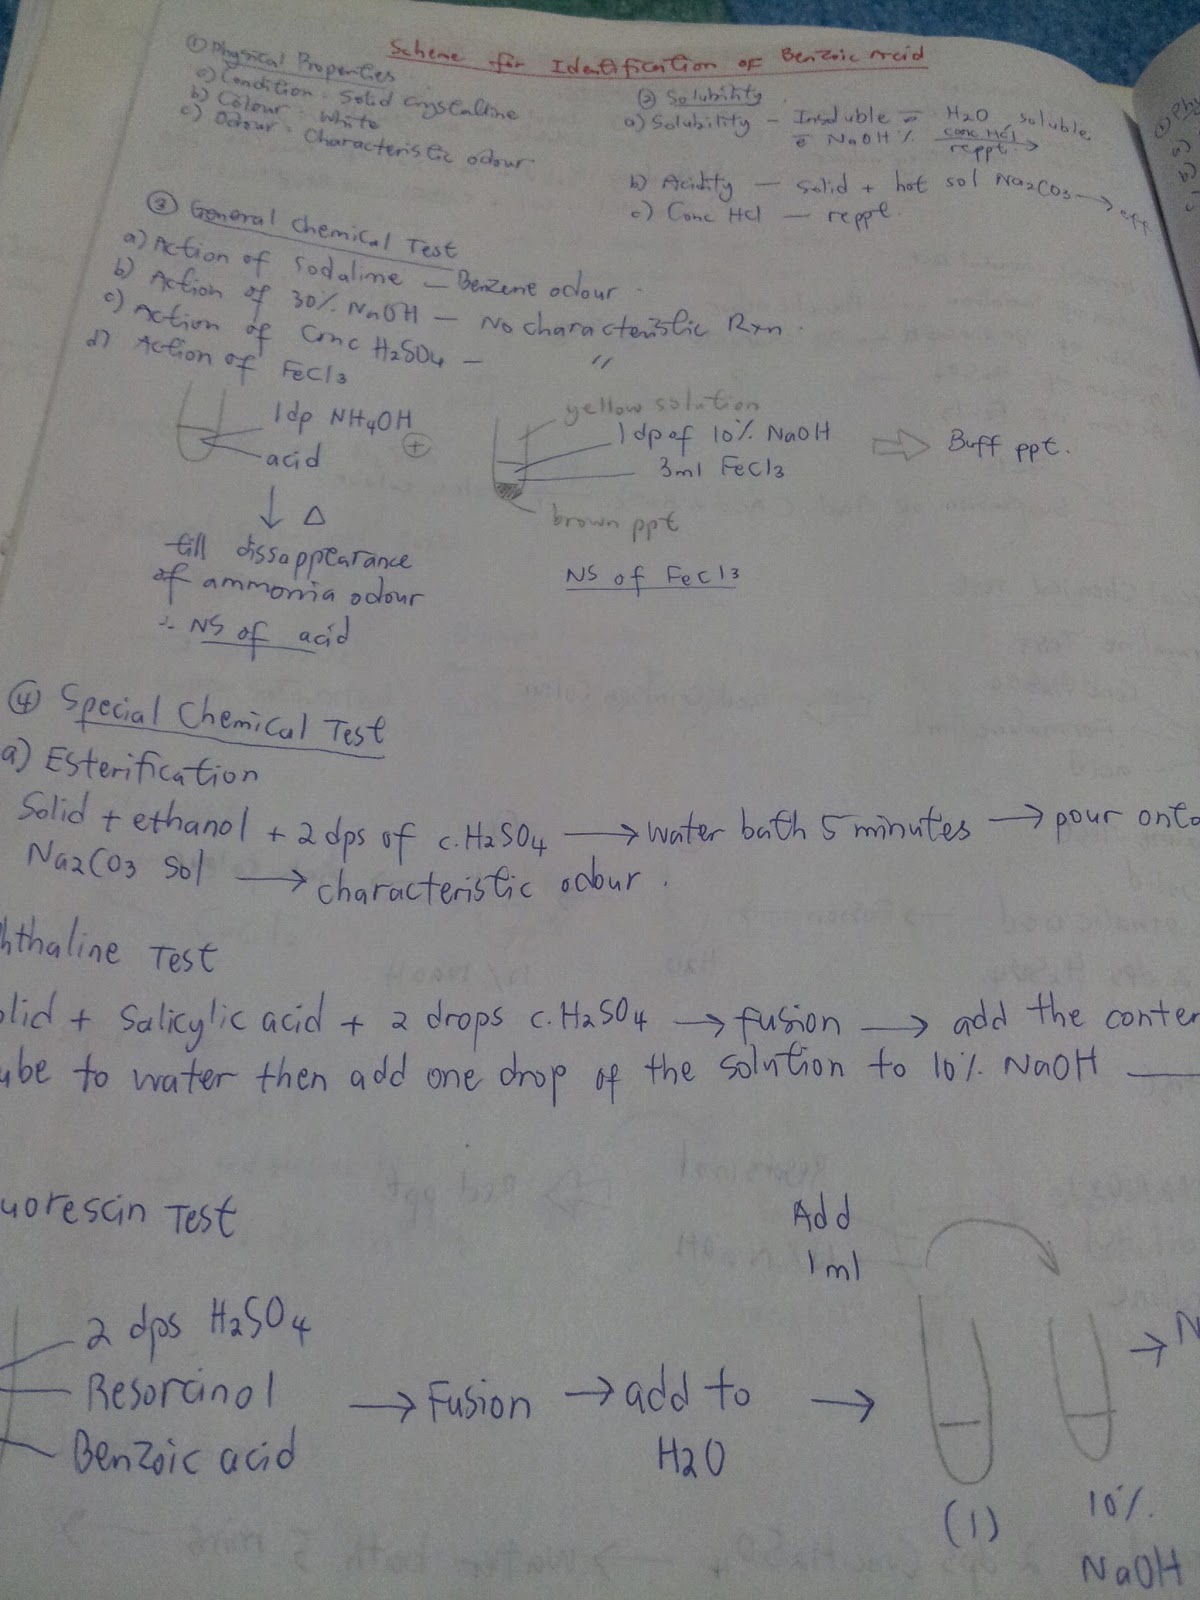 Scheme for Identification of Benzoic Acid
① Physical Properties
a) Condition - Solid Crystalline
b) Colour - White
c) Odour - Characteristic odour.
② Solubility
a) Solubility - Insoluble c̄ H2O, soluble
c̄ NaOH % conc HCl → reppt.
b) Acidity - Solid + hot sol Na2CO3 → eff
c) Conc HCl - reppt.
③ General Chemical Test
a) Action of Sodalime - Benzene odour.
b) Action of 30% NaOH - No characteristic Rxn.
c) Action of Conc H2SO4 - "
d) Action of FeCl3
1dp NH4OH
acid
↓ Δ
till dissappearance
of ammonia odour
∴ NS of acid
⊕
yellow solution
1dp of 10% NaOH
3ml FeCl3
brown ppt
NS of FeCl3
⇒ Buff ppt.
④ Special Chemical Test
a) Esterification
Solid + ethanol + 2 dps of c.H2SO4 → water bath 5 minutes → pour onto
Na2CO3 Sol → characteristic odour.
hthaline Test
olid + Salicylic acid + 2 drops c.H2SO4 → fusion → add the conten
ube to water then add one drop of the solution to 10% NaOH —
uorescin Test
2 dps H2SO4
Resorcinol
Benzoic acid
→ Fusion → add to
H2O
→
Add
1ml
(1)
10%
NaOH
→ N